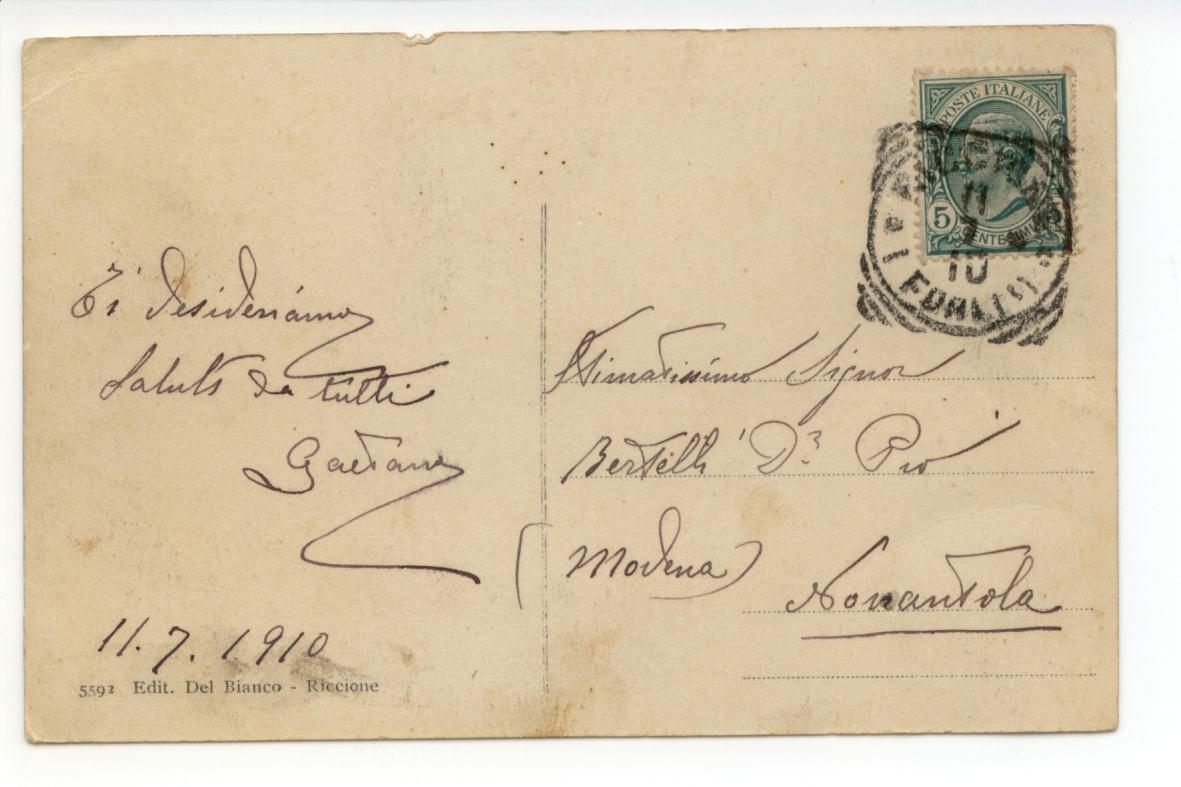 Ti desideriamo
Saluti da tutti
Gaetano
11.7.1910
5592 Edit. Del Bianco - Riccione
POSTE ITALIANE
5
11
7
10
(FORLÌ)
Stimatissimo Signor
Bertelli Dr. Pio
(Modena)
Nonantola